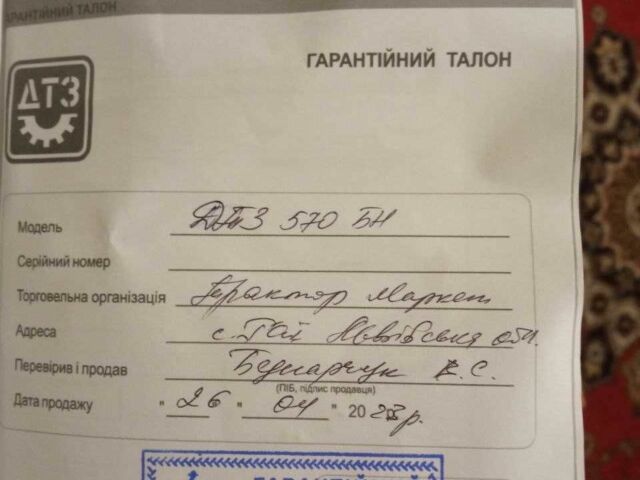 ГАРАНТІЙНИЙ ТАЛОН
ГАРАНТІЙНИЙ ТАЛОН
ДТЗ
Модель ДТЗ 570 БН
Серійний номер
Торговельна організація Трактор Маркет
Адреса с. Гай Львівська обл.
Перевірив і продав Беднарчук К. С.
(ПІБ, підпис продавця)
Дата продажу " 26 " 04 " 2023р.
ГАРАНТІЙНИЙ